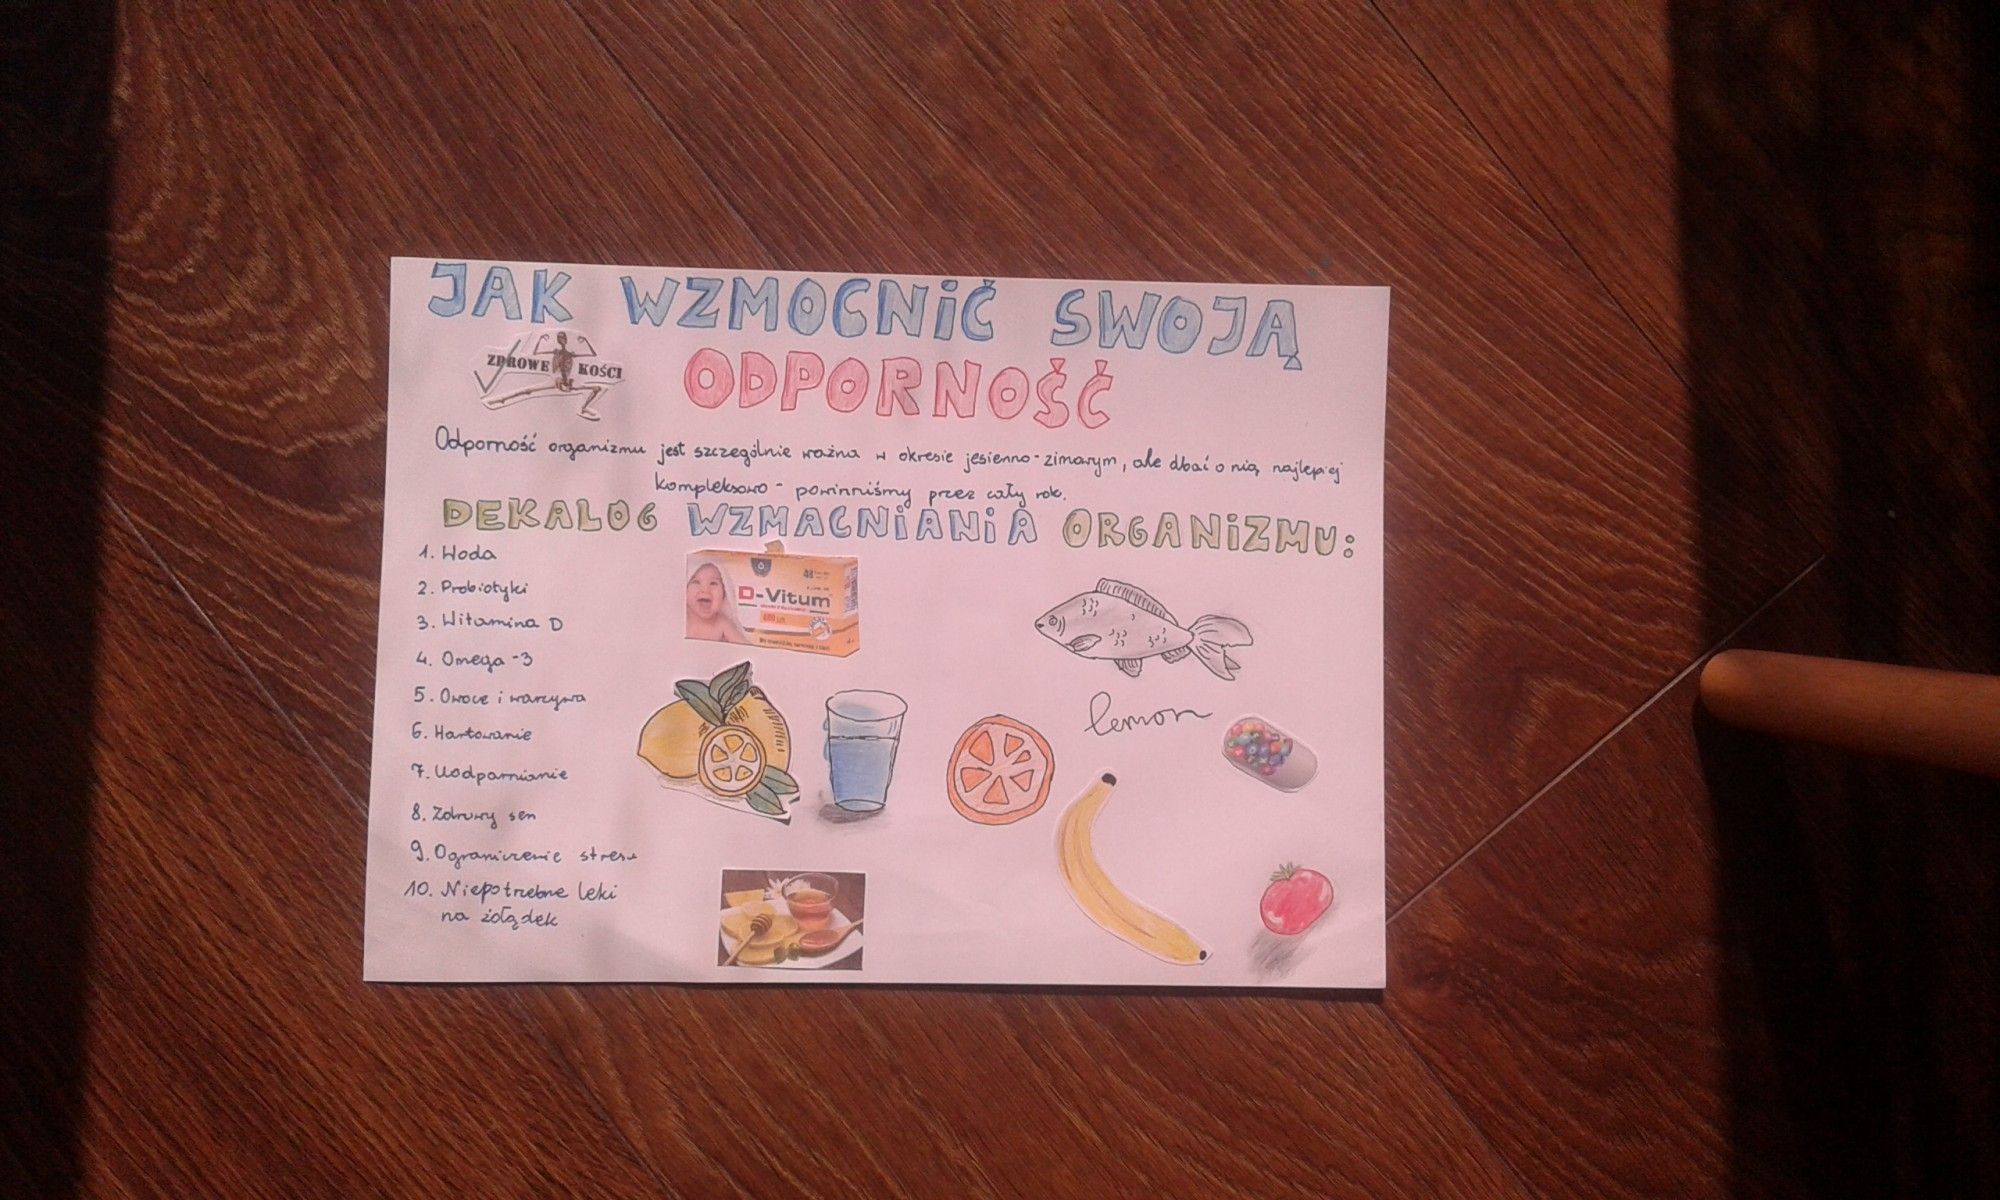 JAK WZMOCNIĆ SWOJĄ
ODPORNOŚĆ
ZDROWE KOŚCI
Odporność organizmu jest szczególnie ważna w okresie jesienno-zimowym, ale dbać o nią najlepiej
kompleksowo - powinniśmy przez cały rok.
DEKALOG WZMACNIANIA ORGANIZMU:
1. Woda
2. Probiotyki
3. Witamina D
4. Omega -3
5. Owoce i warzywa
6. Hartowanie
7. Uodparnianie
8. Zdrowy sen
9. Ograniczenie stresu
10. Niepotrzebne leki
na żołądek
D-Vitum
lemon